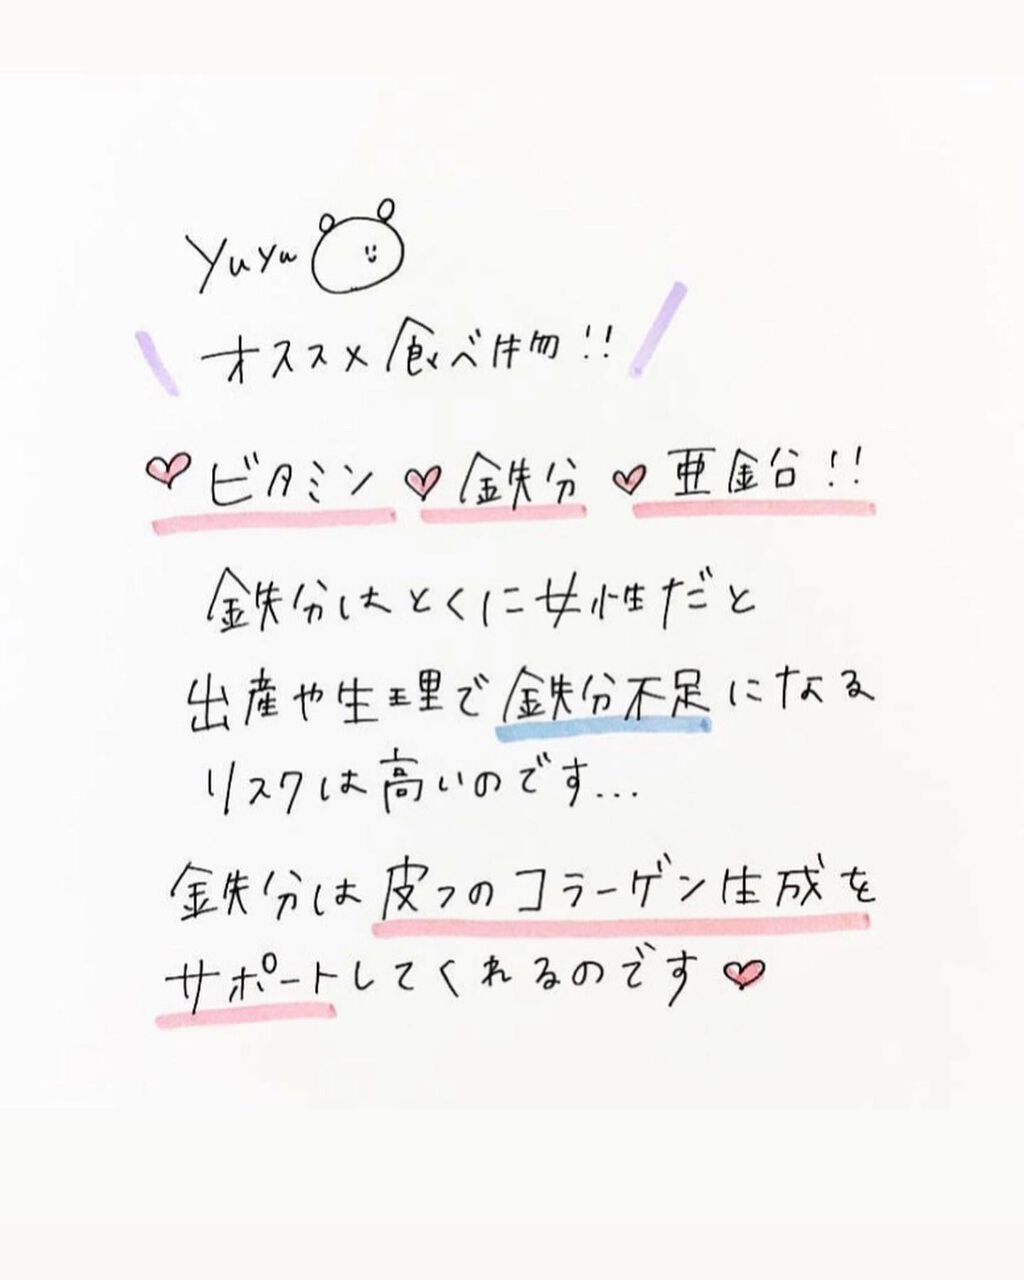 yuyu
オススメ食べ物!!
♥ビタミン♥鉄分♥亜鉛!!
鉄分はとくに女性だと
出産や生理で鉄分不足になる
リスクは高いのです...
鉄分は皮フのコラーゲン生成を
サポートしてくれるのです♥